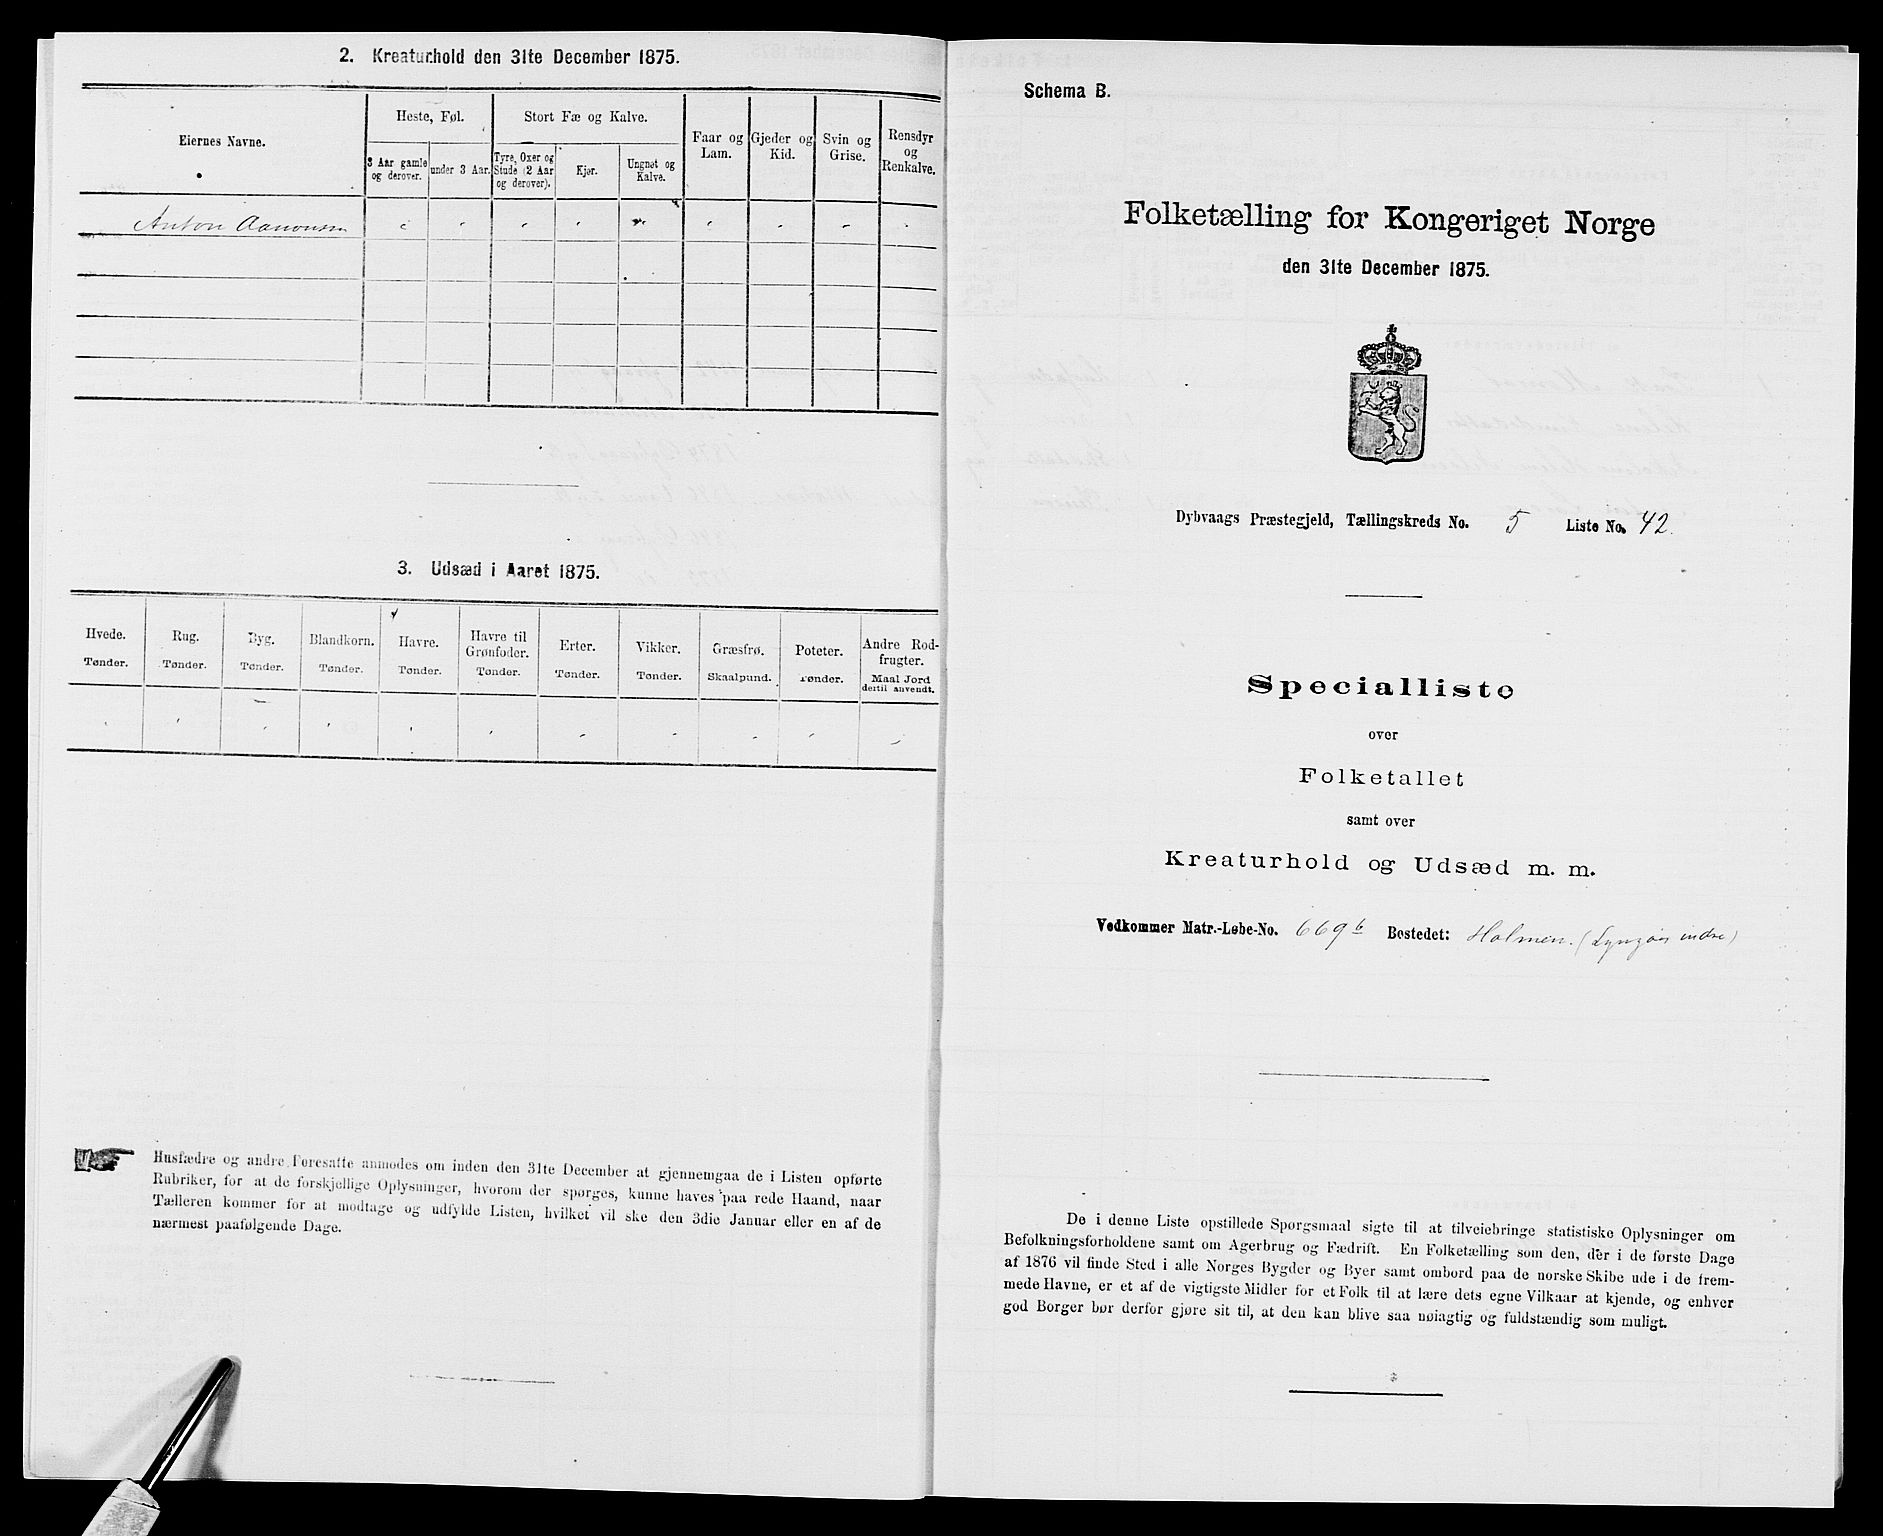 2. Kreaturhold den 31te December 1875.
Eiernes Navne.
Heste, Føl.
Stort Fæ og Kalve.
Faar og Lam.
Gjeder og Kid.
Svin og Grise.
Rensdyr og Renkalve.
3 Aar gamle og derover.
under 3 Aar.
Tyre, Oxer og Stude (2 Aar og derover).
Kjør.
Ungnøt og Kalve.
Anton Aanonsen
3. Udsæd i Aaret 1875.
Hvede. Rug. Byg. Blandkorn. Havre. Havre til Grønfoder. Erter. Vikker. Græsfrø. Poteter. Andre Rodfrugter.
Tønder. Tønder. Tønder. Tønder. Tønder. Tønder. Tønder. Tønder. Skaalpund. Tønder. Maal Jord dertil anvendt.
Husfædre og andre Foresatte anmodes om inden den 31te December at gjennemgaa de i Listen opførte
Rubriker, for at de forskjellige Oplysninger, hvorom der spørges, kunne haves paa rede Haand, naar
Tælleren kommer for at modtage og udfylde Listen, hvilket vil ske den 3die Januar eller en af de
nærmest paafølgende Dage.
Schema B.
Folketælling for Kongeriget Norge
den 31te December 1875.
Dybvaags Præstegjeld, Tællingskreds No. 5 Liste No. 42.
Specialliste
over
Folketallet
samt over
Kreaturhold og Udsæd m. m.
Vedkommer Matr.-Løbe-No. 669b Bostedet: Holmen. (Lyngøer indre)
De i denne Liste opstillede Spørgsmaal sigte til at tilveiebringe statistiske Oplysninger om
Befolkningsforholdene samt om Agerbrug og Fædrift. En Folketælling som den, der i de første Dage
af 1876 vil finde Sted i alle Norges Bygder og Byer samt ombord paa de norske Skibe ude i de frem-
mede Havne, er et af de vigtigste Midler for et Folk til at lære dets egne Vilkaar at kjende, og enhver
god Borger bør derfor gjøre sit til, at den kan blive saa nøiagtig og fuldstændig som muligt.